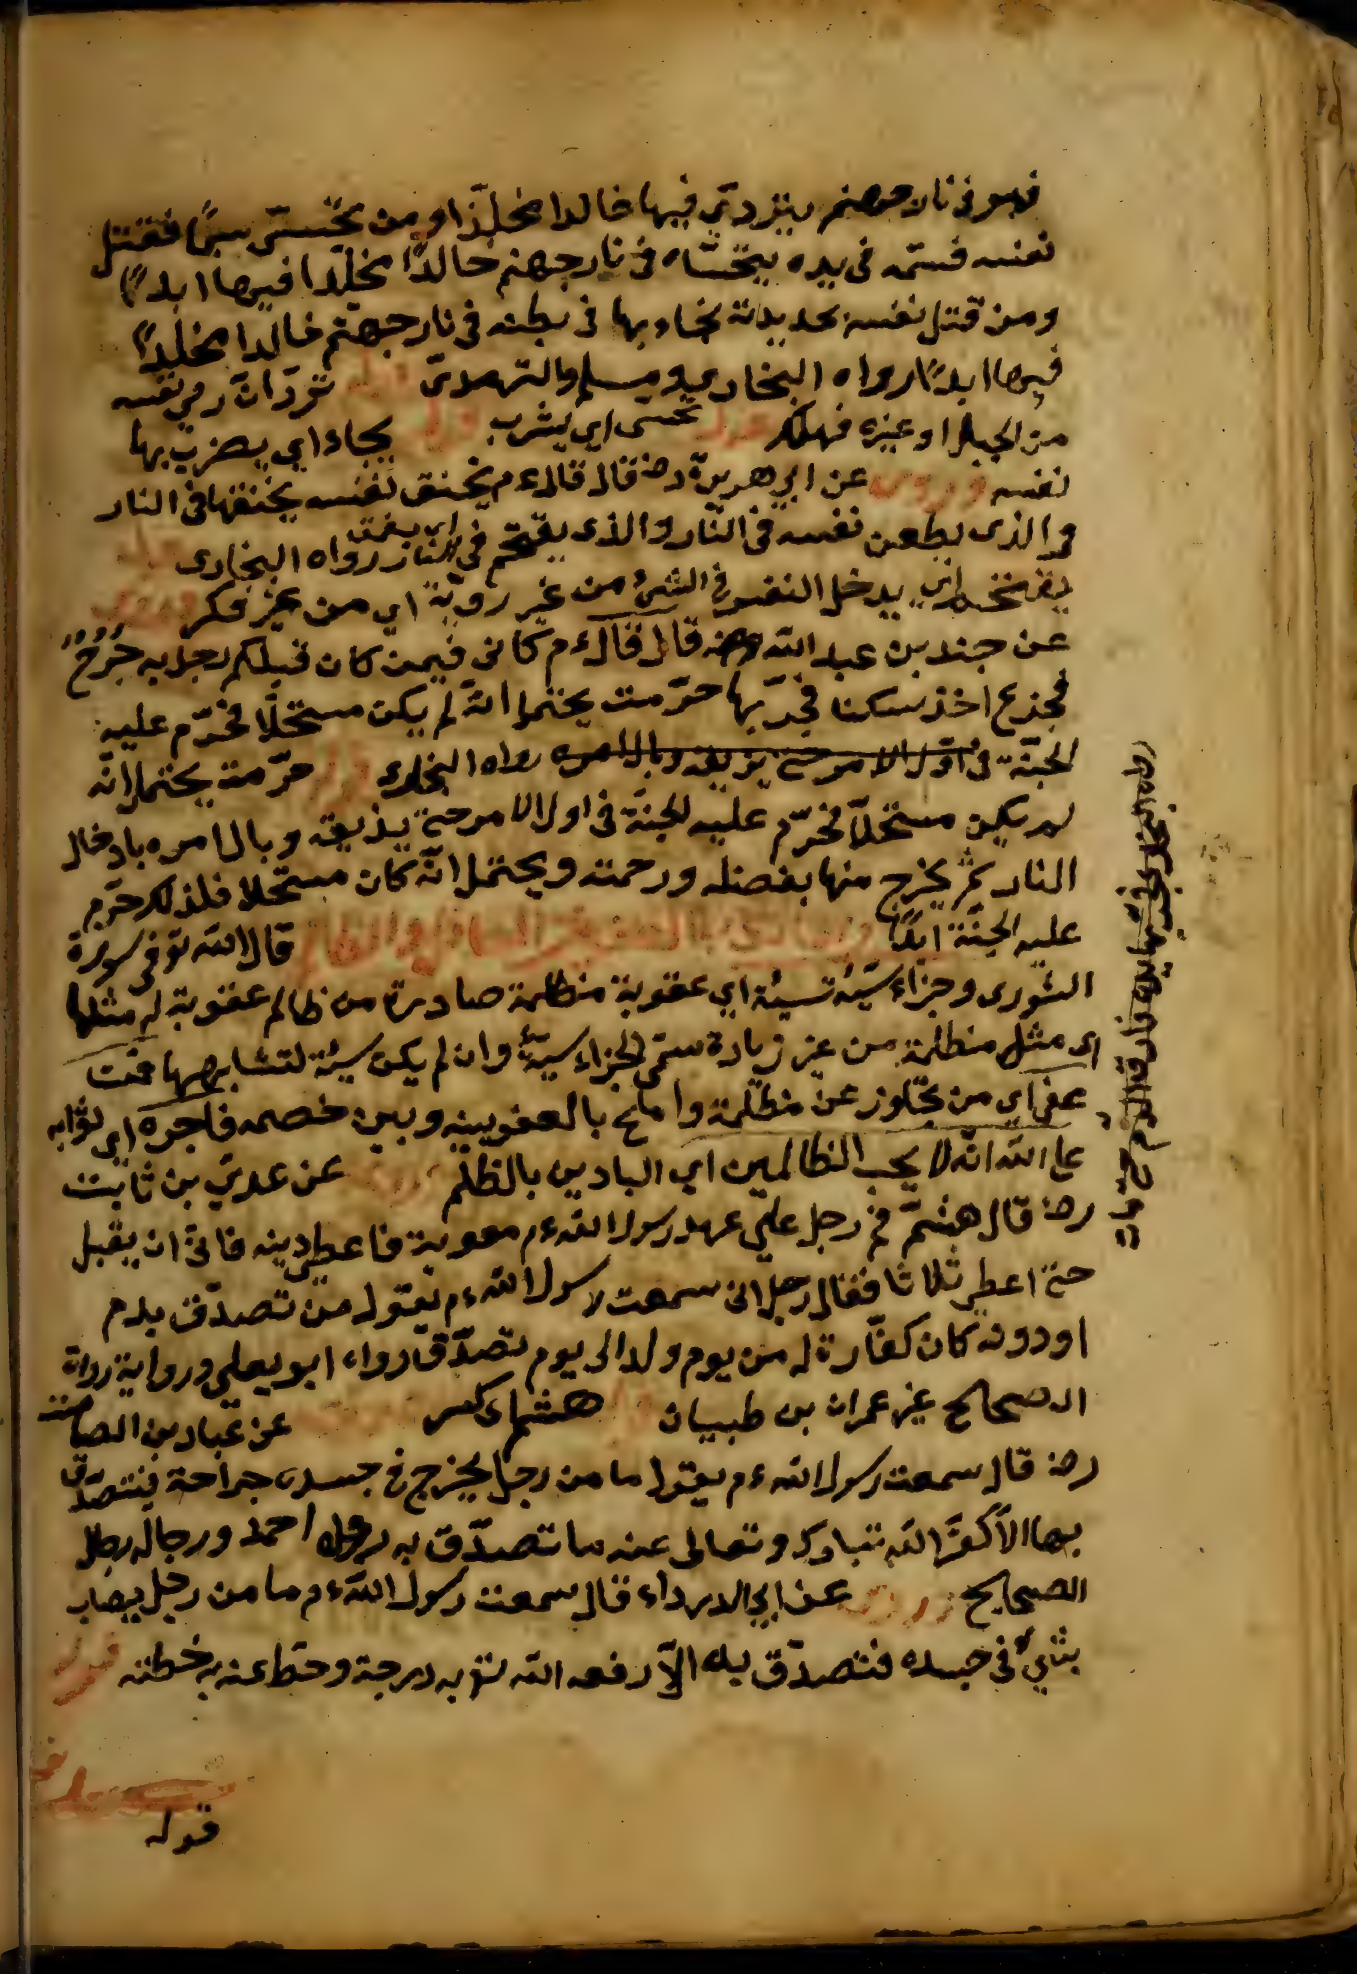 فهو فى نار جهنم يتردى فيها خالدا مخلدا ومن تحسى سما فقتل
نفسه فسمه فى يده يتحساه فى نار جهنم خالدا مخلدا فيها ابدا
ومن قتل نفسه بحديدة يجاء بها فى بطنه فى نار جهنم خالدا مخلدا
فيها ابدا رواه البخارى ومسلم والترمدى قوله تردا اى رمى نفسه
من الجبل او غيره فهلك قوله تحسى اى يشرب قوله يجاء اى يضرب بها
نفسه وروى عن ابى هريرة رضه قال قال ءم يخنق نفسه يخنقها فى النار
والذى يطعن نفسه فى النار والذى يقتحم فى النار رواه البخارى قوله
يقتحم اى يدخل النفس فى الشئ من غير روية اى من غير فكر وروى
عن جندبن عبد الله رضه قال قال ءم كانى فيمن كان قبلكم رجل به جرح
فجزع اخذ سكنا فجز بها حرمت يحتمل انه لم يكن مستحلا فحرم عليه
الجنة فى اول الامر حتى يذيقه وبال امره رواه البخارى قوله حرمت يحتمل انه
لم يكن مستحلا فحرم عليه الجنة فى اول الامر حتى يذيقه وبال امره بادخال
النار ثم يخرج منها بفضله ورحمته ويحتمل انه كان مستحلا فلذلك حرم
عليه الجنة ابدا قال الله تو فى سورة
الشورى وجزاء سيئة سيئة اى عقوبة مظلمة صادرة من ظالم عقوبة له مثلها
اى مثل مظلمة من غير زيادة سمى الجزاء سيئة وان لم يكن سيئة لتشابهها فمن
عفى اى من تجاوز عن مظلمة واصلح بالعفو بينه وبين خصمه فاجره اى ثوابه
على الله انه لا يحب الظالمين اى البادين بالظلم وروى عن عدى بن ثابت
رضه قال هشم فم رجل على عهد رسول الله ءم معوية فاعطى دينه فابى ان يقبل
حتى اعطى ثلاثا فقال رجل انى سمعت رسول الله ءم يقول من تصدق بدم
او دونه كان كفارة له من يوم ولد الى يوم تصدق رواه ابو يعلى ورواية رواة
الصحاح غير عمران بن ظبيان قوله هشم اى كسر وروى عن عباد بن الصامت
رضه قال سمعت رسول الله ءم يقول ما من رجل يخرج فى جسده جراحة فتصدق
بها الا كفر الله تبارك وتعالى عنه ما تصدق به رواه احمد ورجاله رجال
الصحايح وروى عن ابى الدرداء قال سمعت رسول الله ءم ما من رجل يصاب
بشئ فى جسده فتصدق به الا رفعه الله تو به درجة وحط عنه به خطئه قوله
قوله